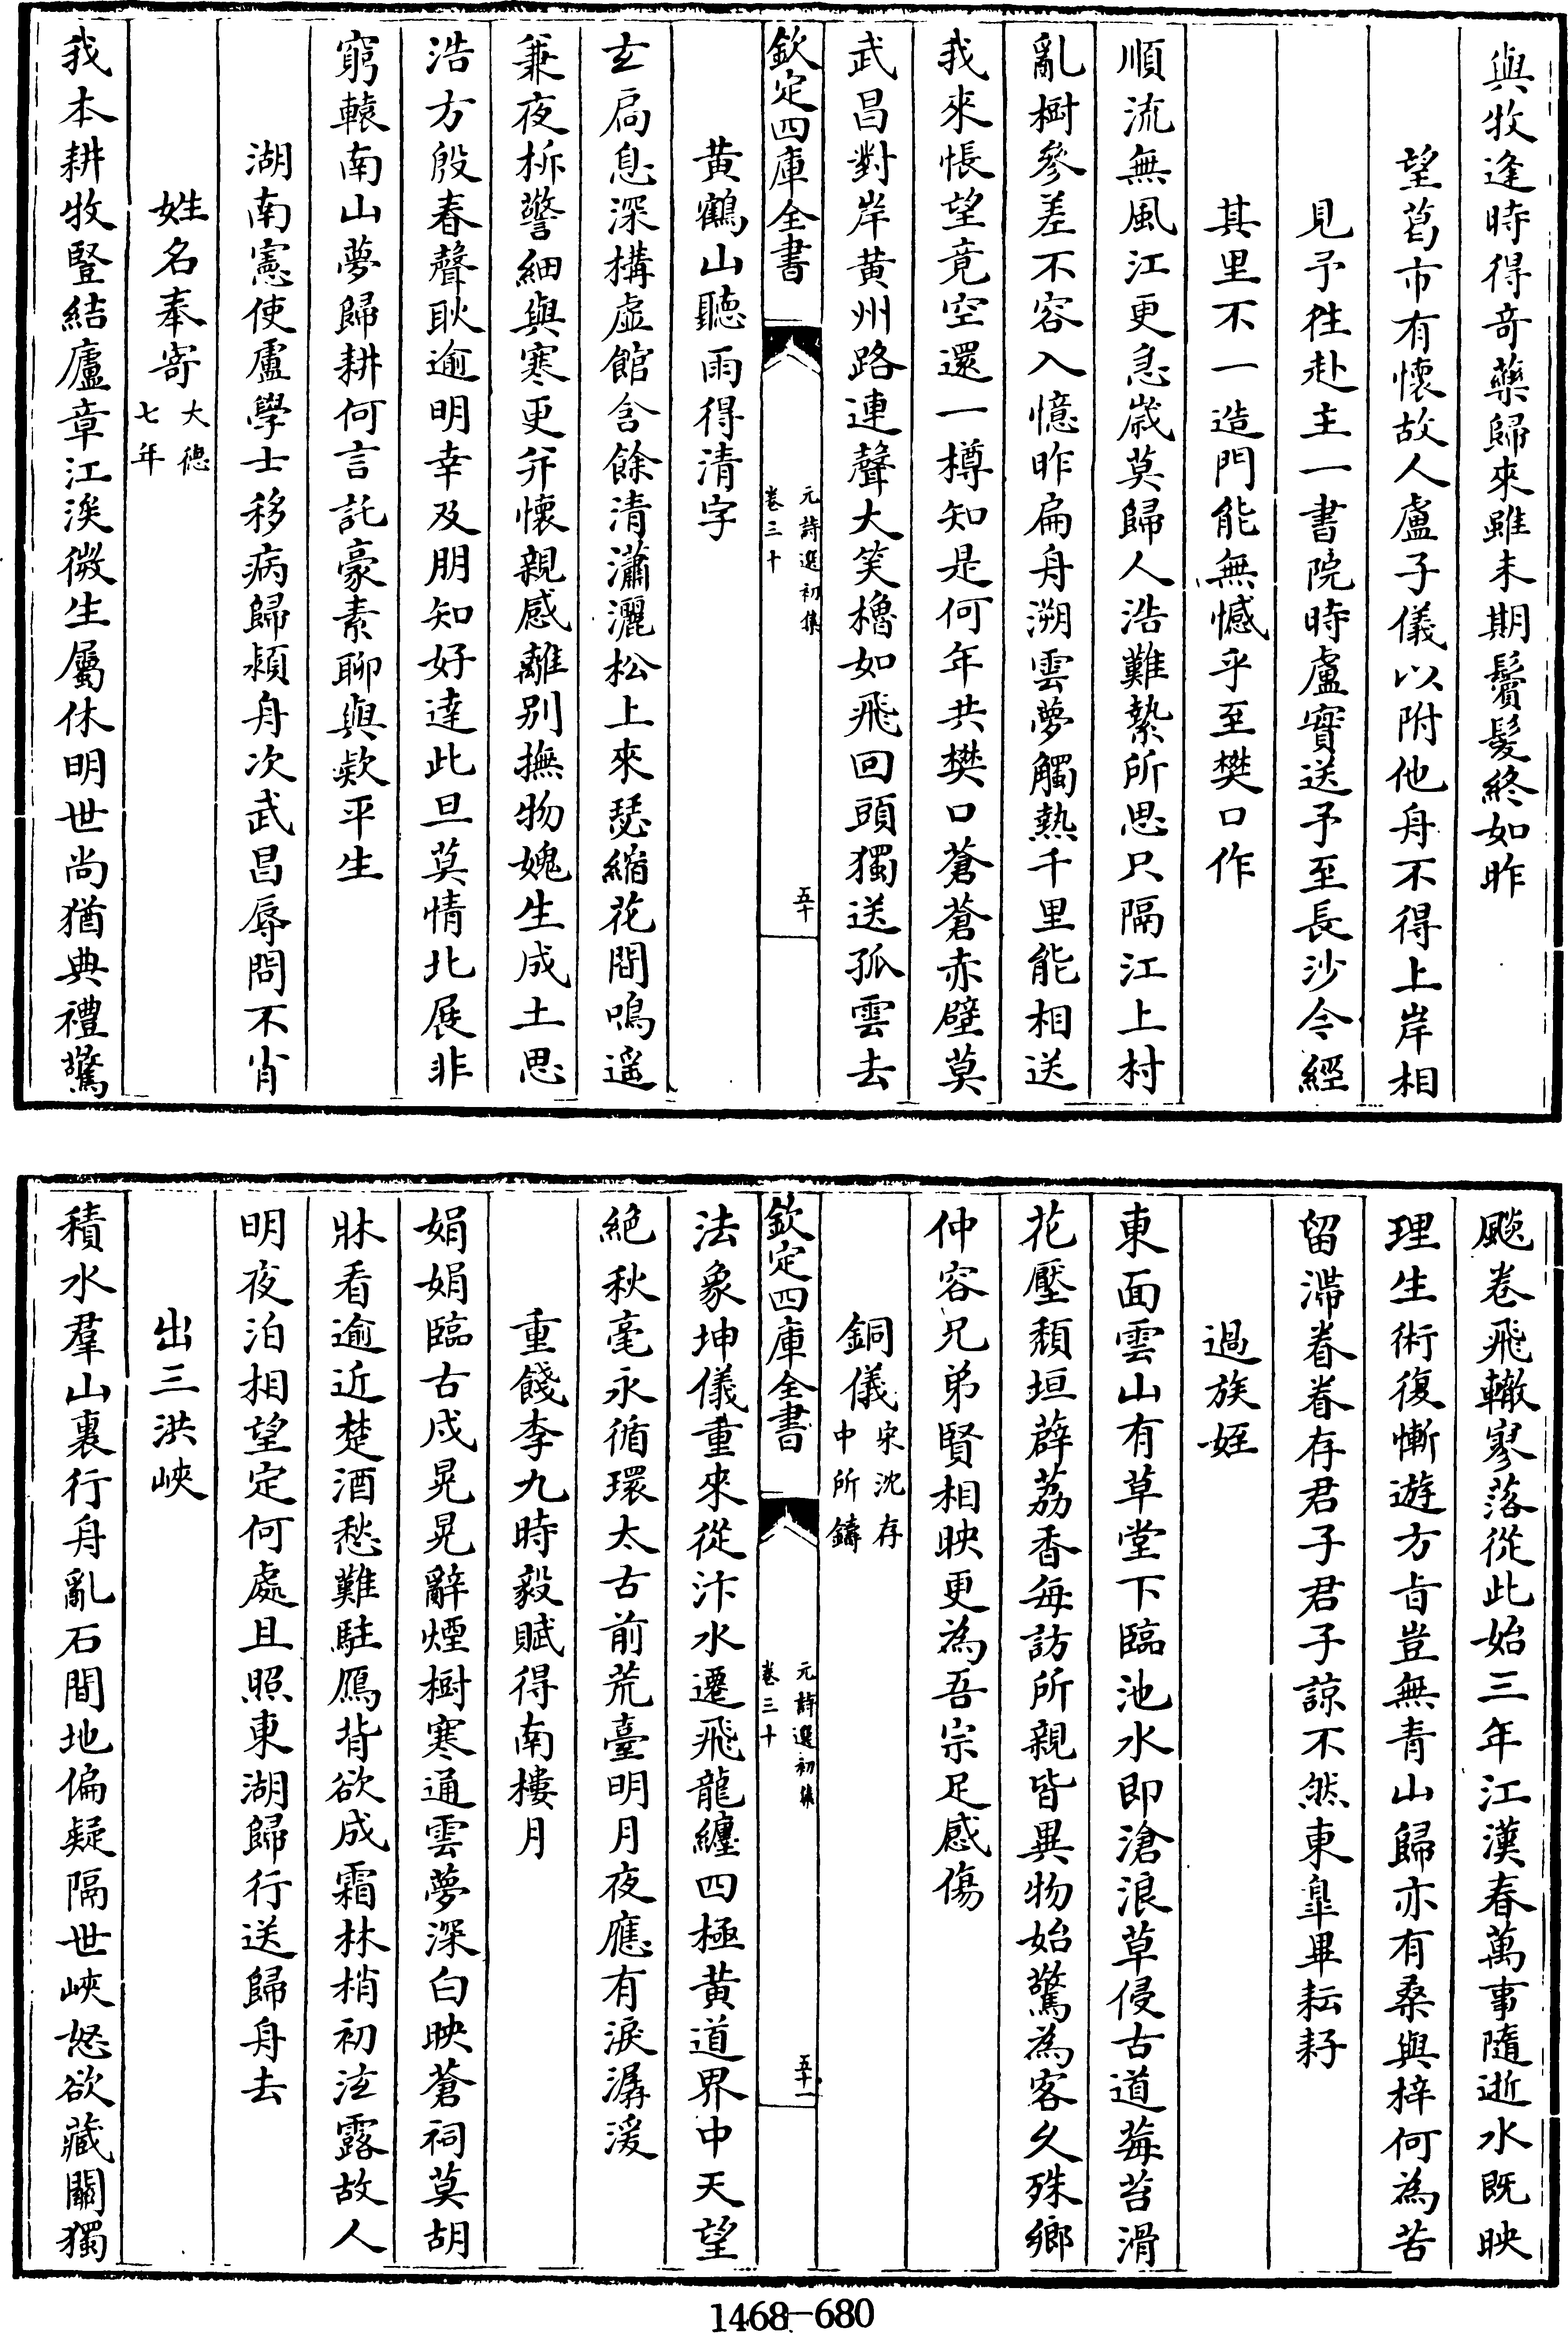 與牧逢時得奇藥歸來雖未期鬢髮終如昨
望葛市有懷故人盧子儀以附他舟不得上岸相
見予往赴主一書院時盧實送予至長沙今經
其里不一造門能無憾乎至樊口作
順流無風江更急歳莫歸人浩難縶所思只隔江上村
亂樹參差不容入憶昨扁舟溯雲夢觸熱千里能相送
我來悵望竟空還一樽知是何年共樊口蒼蒼赤壁莫
武昌對岸黄州路連聲大笑櫓如飛回頭獨送孤雲去
欽定四庫全書
元詩選初集
卷三十
五十
黄鶴山聽雨得清字
玄扃息深構虛館含餘清瀟灑松上來瑟縮花間鳴遥
兼夜柝警細與寒更并懷親感離别撫物媿生成土思
浩方殷春聲耿逾明幸及朋知好達此旦莫情北展非
窮轅南山夢歸耕何言託豪素聊與欵平生
湖南憲使盧學士移病歸潁舟次武昌辱問不肖
姓名奉寄
大德
七年
我本耕牧豎結廬章江涘微生屬休明世尚猶典禮驚
飈卷飛轍寥落從此始三年江漢春萬事隨逝水既映
理生術復慚遊方旨豈無青山歸亦有桑與梓何為苦
留滯眷眷存君子君子諒不然東臯畢耘耔
過族姪
東面雲山有草堂下臨池水即滄浪草侵古道莓苔滑
花壓頽垣薜荔香每訪所親皆異物始驚為客久殊鄉
仲容兄弟賢相映更為吾宗足感傷
銅儀
宋沈存
中所鑄
欽定四庫全書
元詩選初集
卷三十
五十一
法象坤儀重來從汴水遷飛龍纏四極黄道界中天望
絶秋毫永循環太古前荒臺明月夜應有淚潺湲
重餞李九時毅賦得南樓月
娟娟臨古戍晃晃辭煙樹寒通雲夢深白映蒼祠莫胡
牀看逾近楚酒愁難駐鴈背欲成霜林梢初泫露故人
明夜泊相望定何處且照東湖歸行送歸舟去
出三洪峽
積水羣山裏行舟亂石間地偏疑隔世峽怒欲藏關獨
1468-680